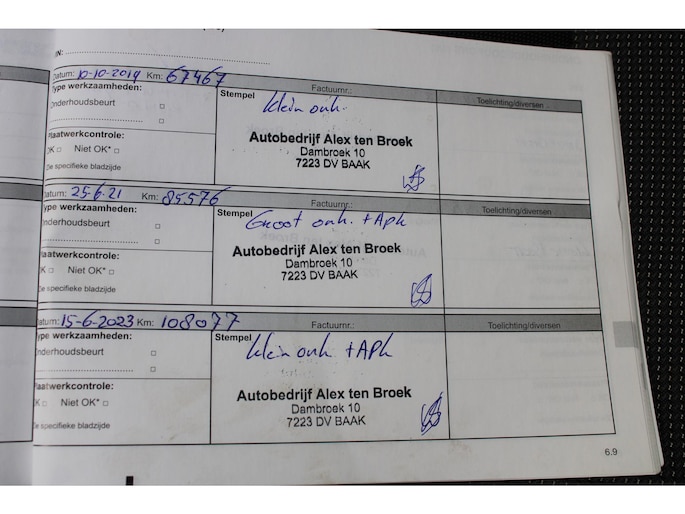 IN:
Datum: 10-10-2019 Km: 67467 Factuurnr.:
Type werkzaamheden: Stempel klein onh. Toelichting/diversen
Onderhoudsbeurt
Plaatwerkcontrole: Autobedrijf Alex ten Broek
OK Niet OK* Dambroek 10
Zie specifieke bladzijde 7223 DV BAAK
Datum: 25-6-21 Km: 85576 Factuurnr.:
Type werkzaamheden: Stempel Groot onh. +Apk Toelichting/diversen
Onderhoudsbeurt
Plaatwerkcontrole: Autobedrijf Alex ten Broek
K Niet OK* Dambroek 10
Zie specifieke bladzijde 7223 DV BAAK
Datum: 15-6-2023 Km: 108077 Factuurnr.: Toelichting/diversen
Type werkzaamheden: Stempel klein onh. +Apk
Onderhoudsbeurt
Plaatwerkcontrole: Autobedrijf Alex ten Broek
K Niet OK* Dambroek 10
Zie specifieke bladzijde 7223 DV BAAK
6.9